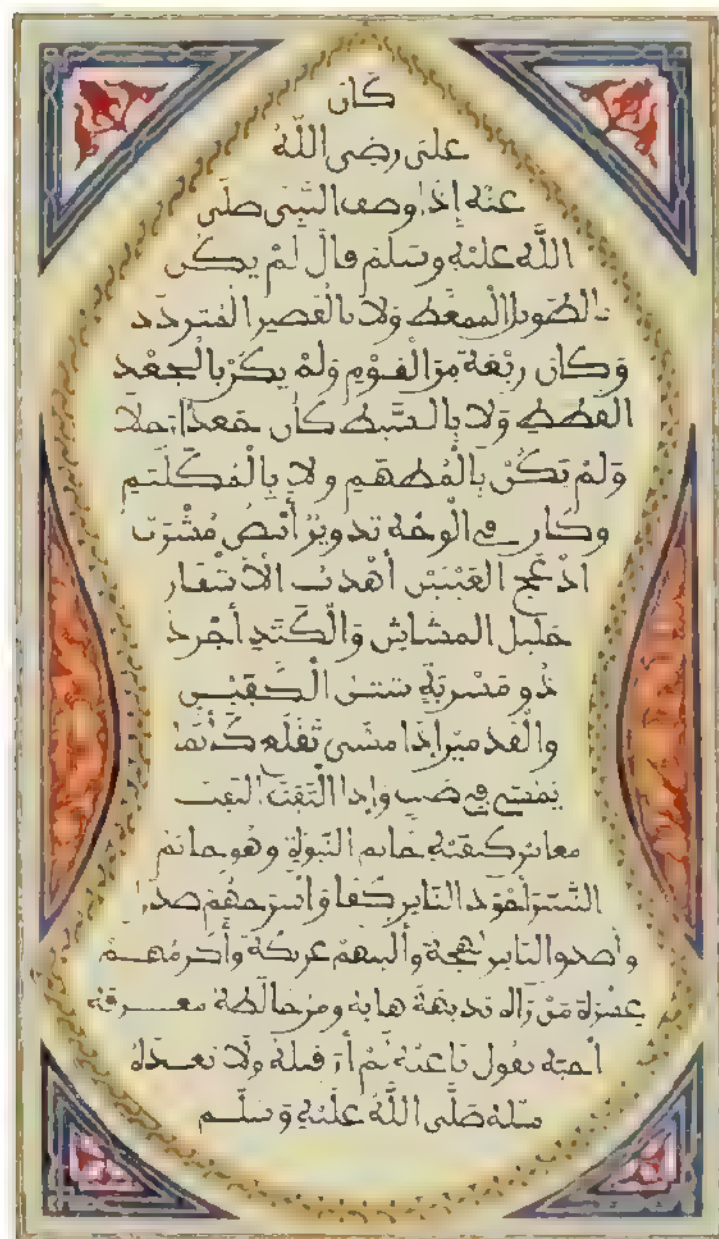 كَان
علي رضى اللَّهُ
عنْه إِذَا وصف النَّبِيَّ صَلَّى
اللَّهُ عليْهِ وسَلم قال لمْ يكُن
بالطَّويل الْممغَّط وَلَا بالْقَصير الْمُتردّد
وَكان ربْعَةً مِنَ الْقوْمِ وَلَمْ يكُنْ بالْجعْد
القطَطِ وَلَا بِالسَّبط كان جَعداً رجلا
وَلمْ يَكُنْ بِالْمُطهَّمِ ولا بِالْمُكَلْثَمِ
وكان في الْوجْه تدويرٌ أبيضُ مُشْرَبٌ
ادْعَج العَيْنين أهْدبُ الْاشْفار
جَليل المشَاش وَالْكَتَدِ أجْردُ
ذُو مَسْربَةٍ شثن الْكَفيْن
والْقَدميْن إذا مشَى تَقَلَّع كَأنّما
يَمْشي في صَبب وإذا الْتَفتَ التفت
معا بين كتفيْه خَاتم النّبوّة وهُو خاتم
النَّبيّينَ أجْوَد النّاس كفّا وَأشرحهُمْ صدرا
وأصدق النّاس لهْجةً وألينهمْ عريكةً وأكرمُهـمْ
عِشْرَةً مَنْ رَآه بديهَةً هابه ومن خالطهُ معـرفة
أحبّه يقُول ناعتُهُ لَمْ أرَ قبلهُ ولَا بعـدهُ
مثله صَلَّى اللَّهُ عَلَيْهِ وَسَلَّـم